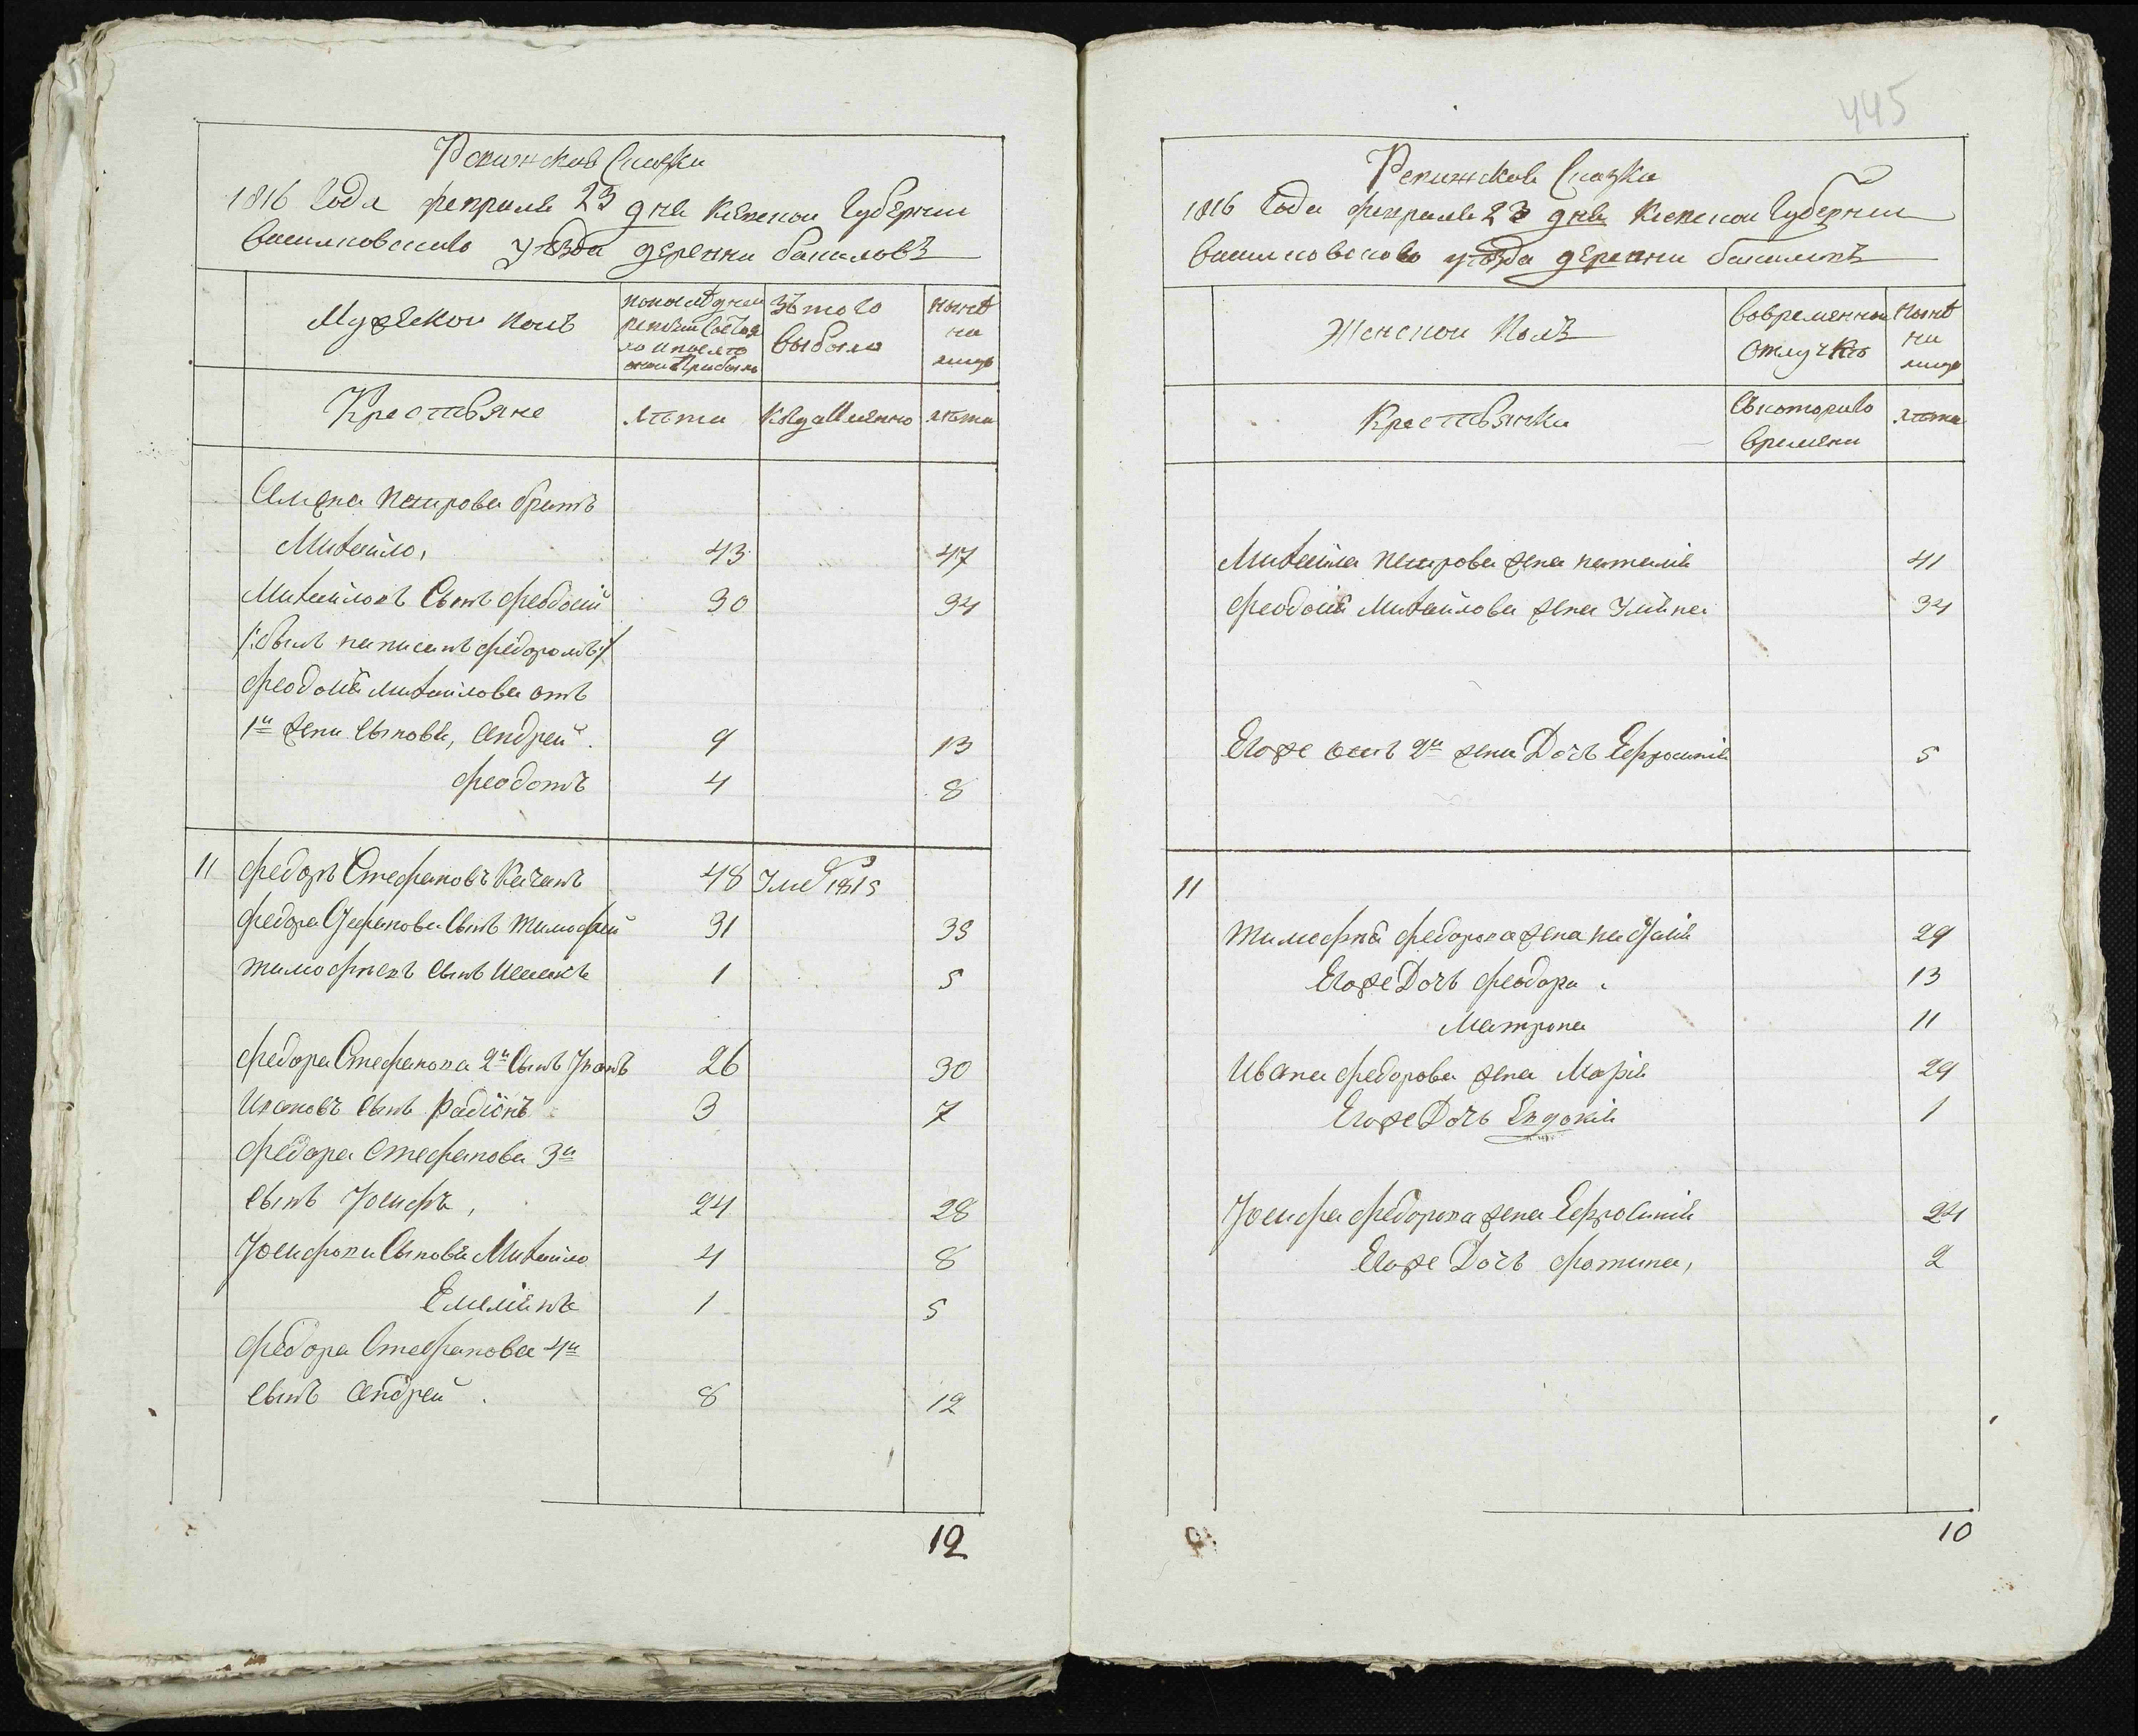 Ревижская Сказка
1816 Года февраля 23 дня Киевской Губернии
Васильковскаго уезда деревни
Мужеской полъ
по последней
ревизии состоя
ло и после
оной прибыло
Изъ того
выбыло
ныне
на
лицо
Крестьяне
лета
Когда именно
лета
Петрова братъ
Михайло,
43
47
Михайловъ Сынъ Феодосий
30
34
/:былъ написанъ Федоромъ:/
Феодосия Михайлова отъ
1й жены Сыновя, Андрей.
9
13
Феодотъ
4
8
11
Федоръ Стефановъ Качанъ
48
Уме 1815
Федора Стефанова Сынъ Тимофей
31
35
Тимофеевъ Сынъ
1
5
Федора Стефанова 2й Сынъ Іванъ
26
30
Ивановъ Сынъ Радіонъ
3
7
Федора Стефанова 3й
Сынъ Іосифъ,
24
28
Іосифови Сыновя Михайло
4
8
Емеліянъ
1
5
Федора Стефанова 4й
Сынъ Андрей.
8
12
12
445
Ревижская Сказка
1816 Года февраля 23 дня Киевской Губернии
Васильковскаго уезда деревни
Женской Полъ
Вовременной
отлучке
ныне
на
лицо
Крестьянки
Скотораго
времени
лета
Михайла Петрова жена Наталія
41
Феодосія Михайлова жена Уліяна
34
Егоже отъ 2й жены Дочь Ефросинія
5
11
Тимофея Федорова жена
29
Егоже Дочь Феодора.
13
Матрона
11
Ивана Федорова жена Марія
29
Егоже Дочь Евдокія
1
Іосифа Федорова жена Ефросинія
24
Егоже Дочь Фотина,
2
10